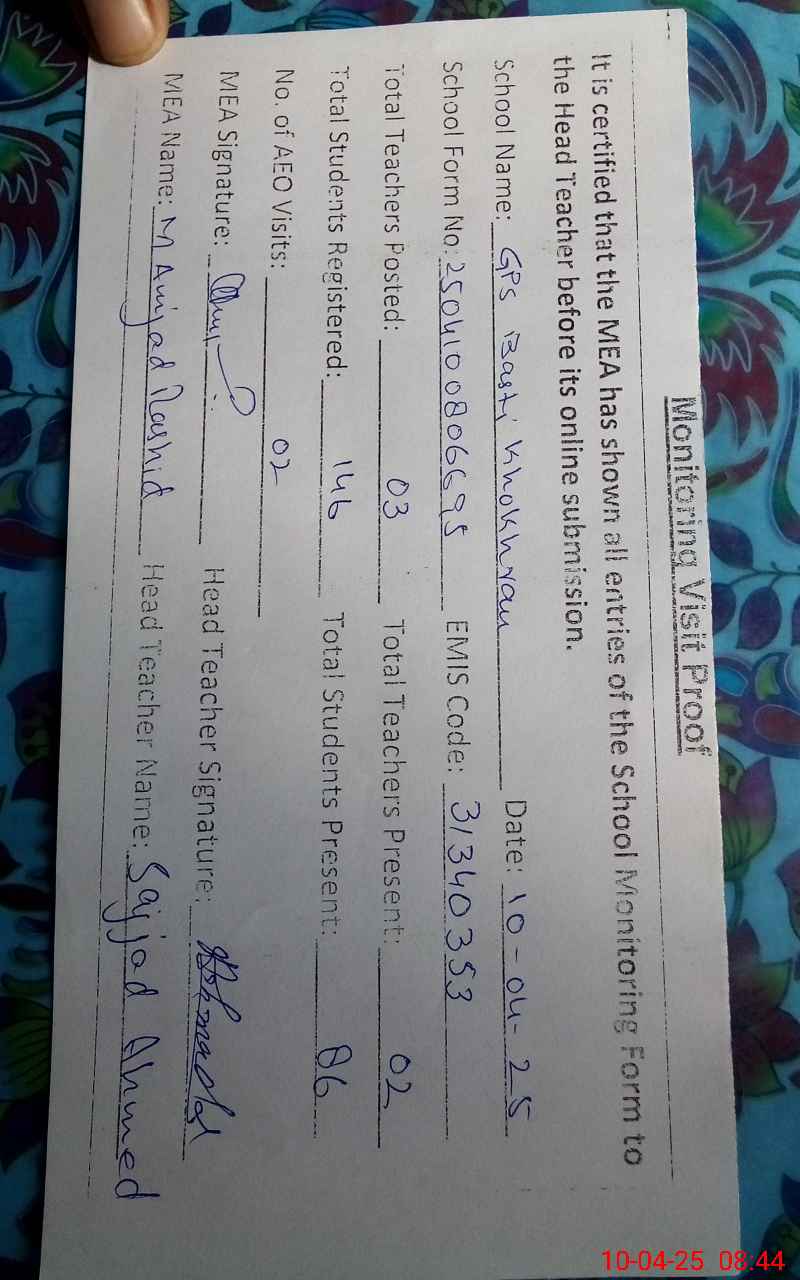 Monitoring Visit Proof
It is certified that the MEA has shown all entries of the School Monitoring Form to
the Head Teacher before its online submission.
School Name: GPS Basti Khokhran Date: 10-04-25
School Form No: 2504100806695 EMIS Code: 31340353
Total Teachers Posted: 03 Total Teachers Present: 02
Total Students Registered: 146 Total Students Present: 86
No. of AEO Visits: 02
MEA Signature: Head Teacher Signature:
MEA Name: M Amjad Rashid Head Teacher Name: Sajjad Ahmed
10-04-25 08:44